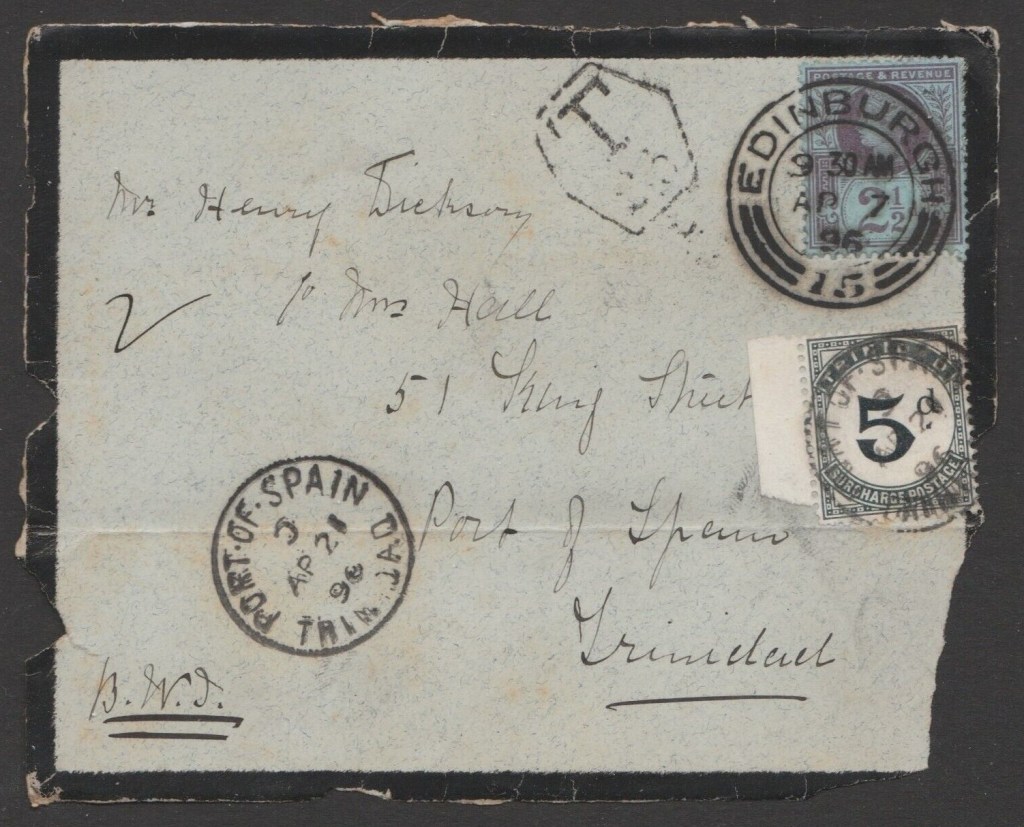 T
POSTAGE & REVENUE
2½
EDINBURGH
9 30 AM
AP 7
96
15
Mr Henry Dickson
2
Mrs Hall
51 King Street
5 d
SURCHARGE POSTAGE
PORT-OF-SPAIN TRINIDAD
AP 21
96
Port of Spain
Trinidad
B.W.I.